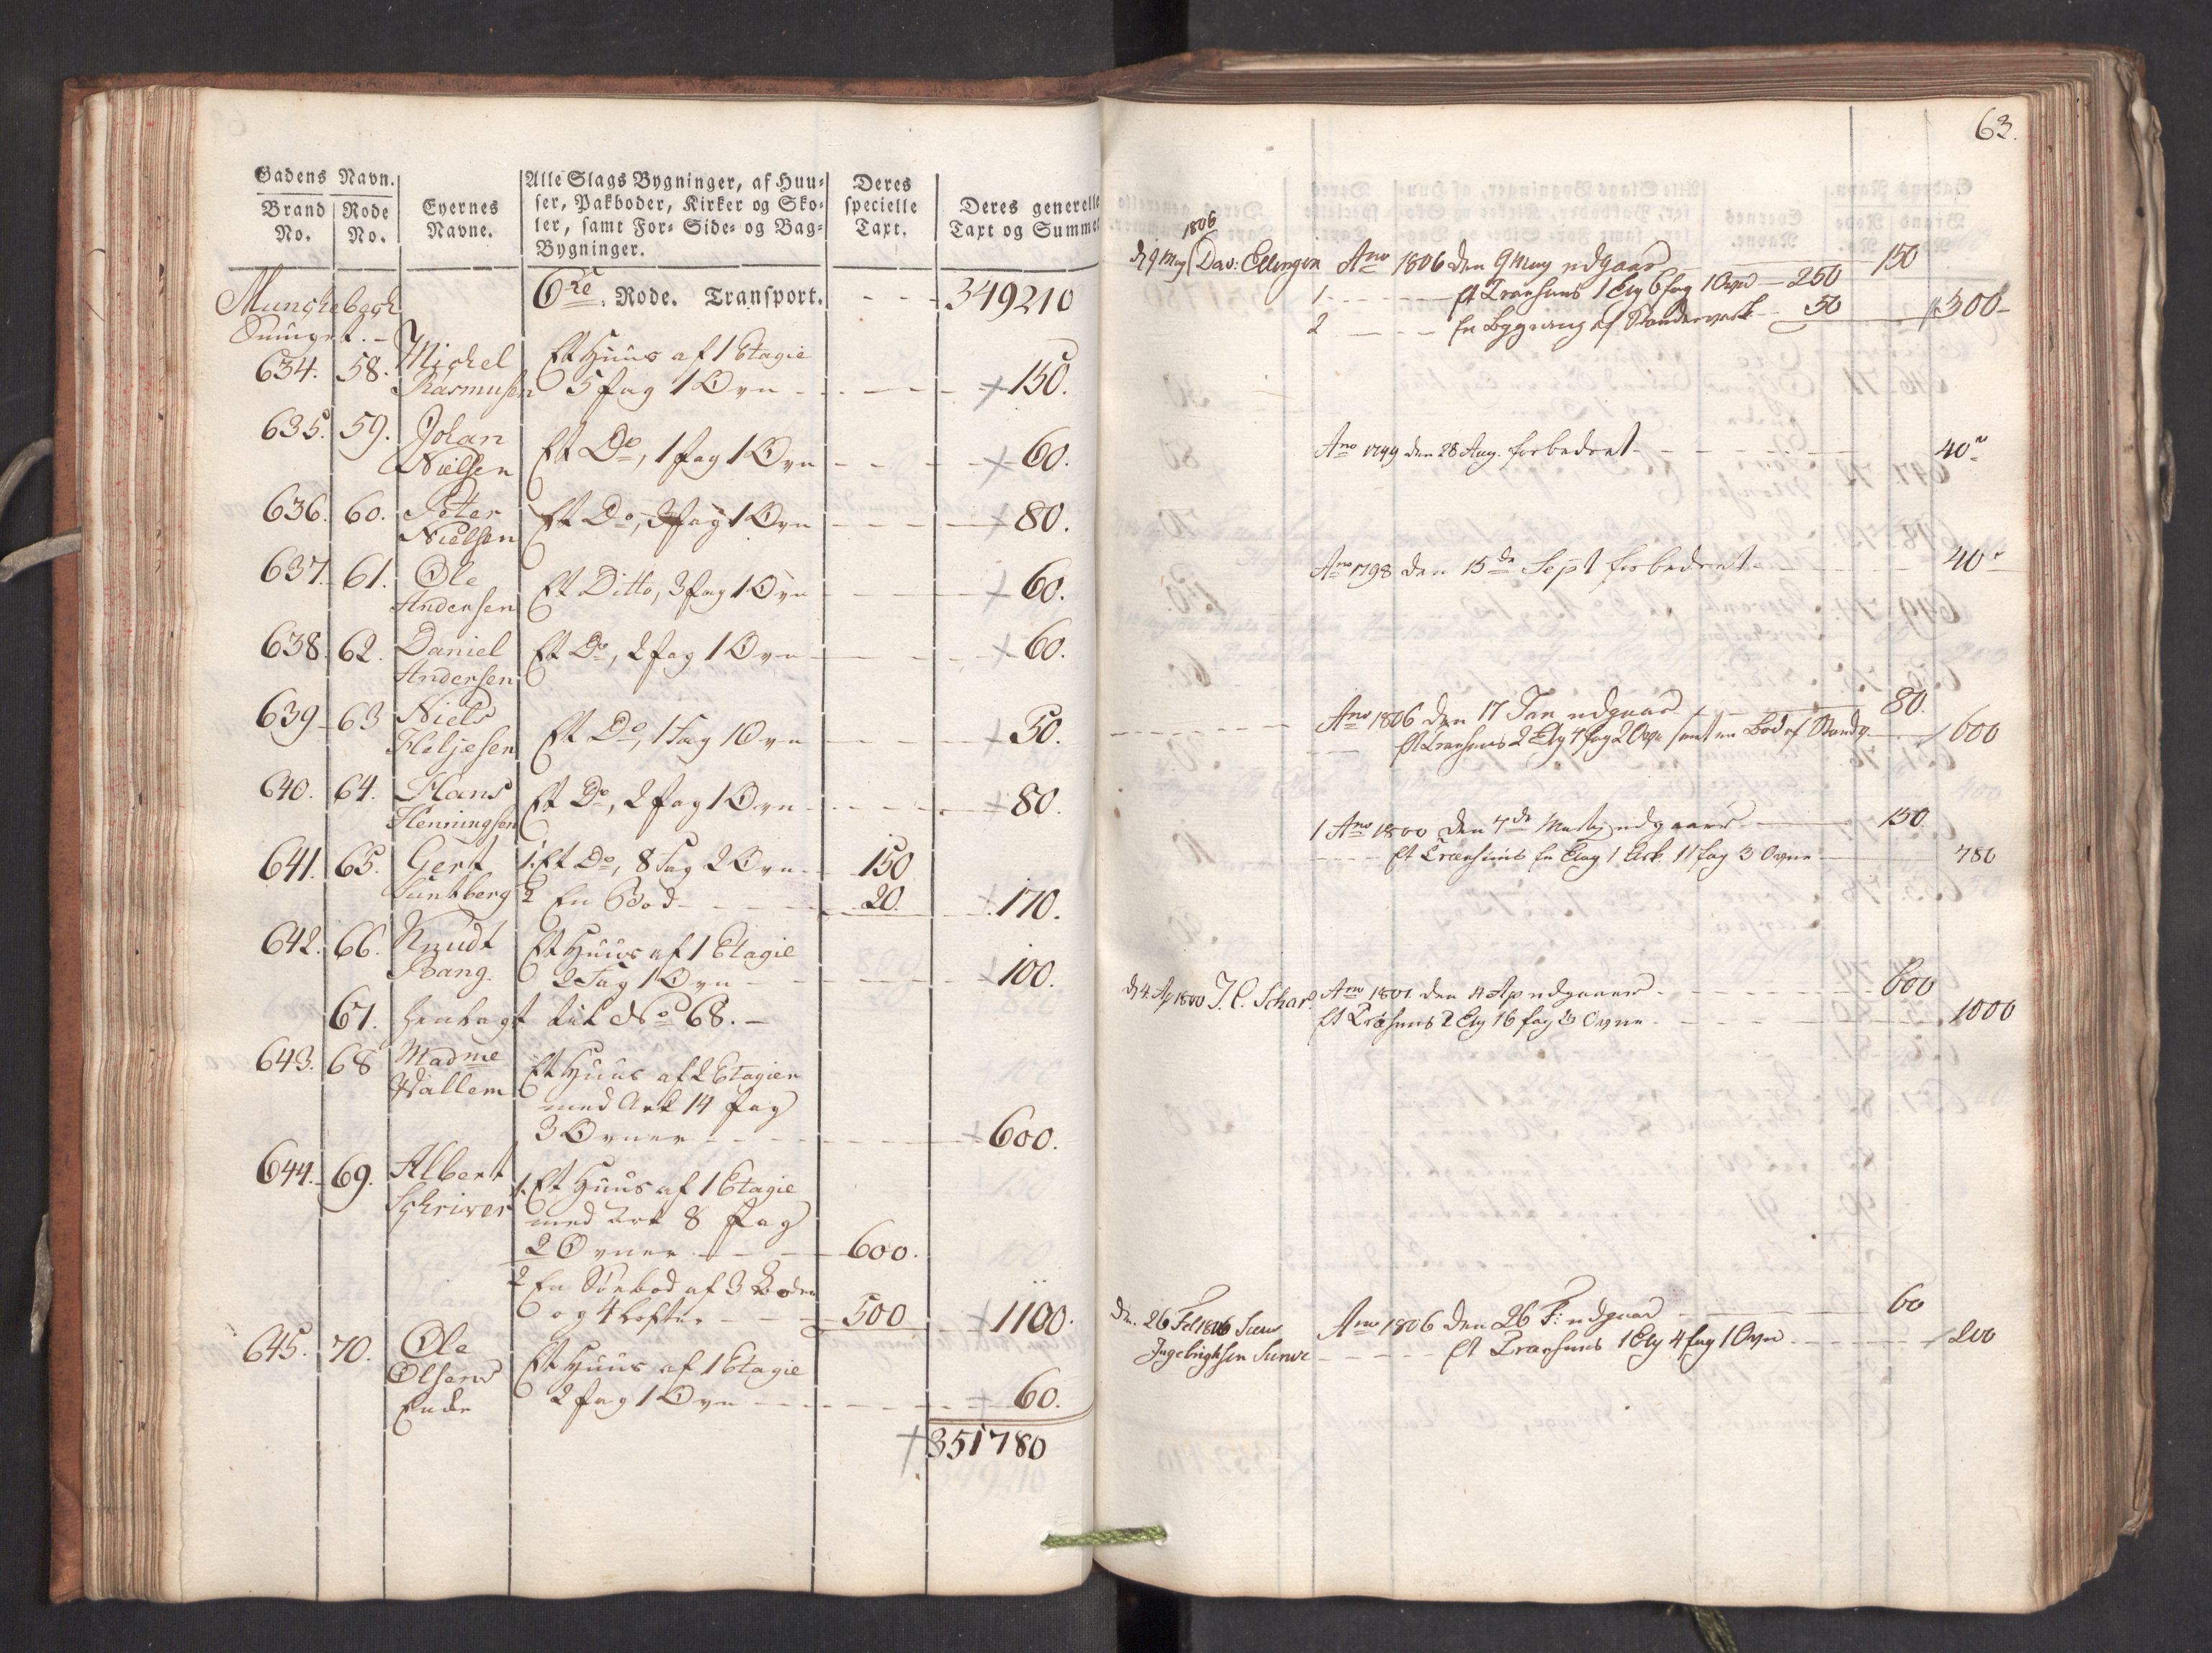 Gadens Navn.
Brand No.
Rode No.
Eyernes Navne.
Alle Slags Bygninger, af Huu-
ser, Pakboder, Kirker og Sko-
ler, samt For- Side- og Bag-
Bygninger.
Deres specielle Taxt.
Deres generelle Taxt og Summer
6te Rode. Transport. - - - 349210
634. 58. Michel Et Huus af 1 Etagie
Rasmusen 5 fag 1 Ovn - - - 150.
635. 59. Johan
Nielsen Et Do, 1 fag 1 Ovn - - - 60.
636. 60. Peter
Nielsen Et Do, 3 fag 1 Ovn - - - 80.
637. 61. Ole
Andersen Et Ditto, 3 fag 1 Ovn - - - 60.
638. 62. Daniel
Andersen Et Do, 2 fag 1 Ovn - - - 60.
639 - 63 Niels
Heljesen Et Do, 1 Fag 1 Ovn - - - 50.
640. 64. Hans
Henningsen Et Do, 2 fag 1 Ovn - - - 80.
641. 65. Gert 1. Et Do, 8 Fag 2 Ovn - 150
Suntberg 2 En Bod - - - 20. 170.
642. 66. Knudt Et Huus af 1 Etagie
Bang. 2 Fag 1 Ovn - - - 100.
67. henlagt til No 68. -
643. 68 Madme Et Huus af 2 Etagier
Wallem med Ark 14 fag
3 Ovner - - - 600.
644. 69. Albert 1. Et Huus af 1 Etagie
Schriver med Ark 8 fag
2 Ovner - - - 600.
2 En Søebod af 3 Boder
og 4 Lofter - - - 500 1100.
645. 70. Ole Et Huus af 1 Etagie
Olsens 2 fag 1 Ovn - - - 60.
Enke
351780
63.
1806
d 9 May Dav: Ellingsen Ano 1806 den 9 May udgaar - 150
1 - - - Et Træehuus 1 Etg 6 fag 1 Ovn - 250
2 - - - En Bygning af Standerverk - 50 300 -
Ano 1799 den 28 Aug. forbedret - - - 40
Ano 1798 den 15de Sept forbedret - - - 40
Ano 1806 den 17 Jan udgaar - 80.
Et Træehuus 2 Etg 4 fag 2 Ovn samt en Bod af Standv. 600
1 Ano 1800 den 7de udgaaer - 150.
Et Træehuus En Etag 1 Ark 11 fag 3 Ovne - 780
d 4. Ap 1800 J. C. Schar. Ano 1801. den 4 Ap udgaaer - - - 600
Et Træhuus 2 Etg 16 fag 3 Ovne - - - 1000
Den 26 Feb 1806 Ano 1806 den 26 F: udgaar - 60
Ingebrigtsen Et Træehuus 1 Etg 4 fag 1 Ovn - - - 200